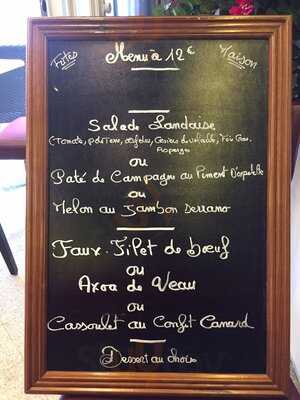 Frites
Menu à 12€
Maison
Salade Landaise
(Tomate, Gésiers de volaille, Foie Gras,
Asperges
ou
Paté de Campagne au Piment D'espelette
ou
Melon au Jambon Serrano
Faux-Filet de bœuf
ou
Axoa de Veau
ou
Cassoulet au Confit Canard
Dessert au choix